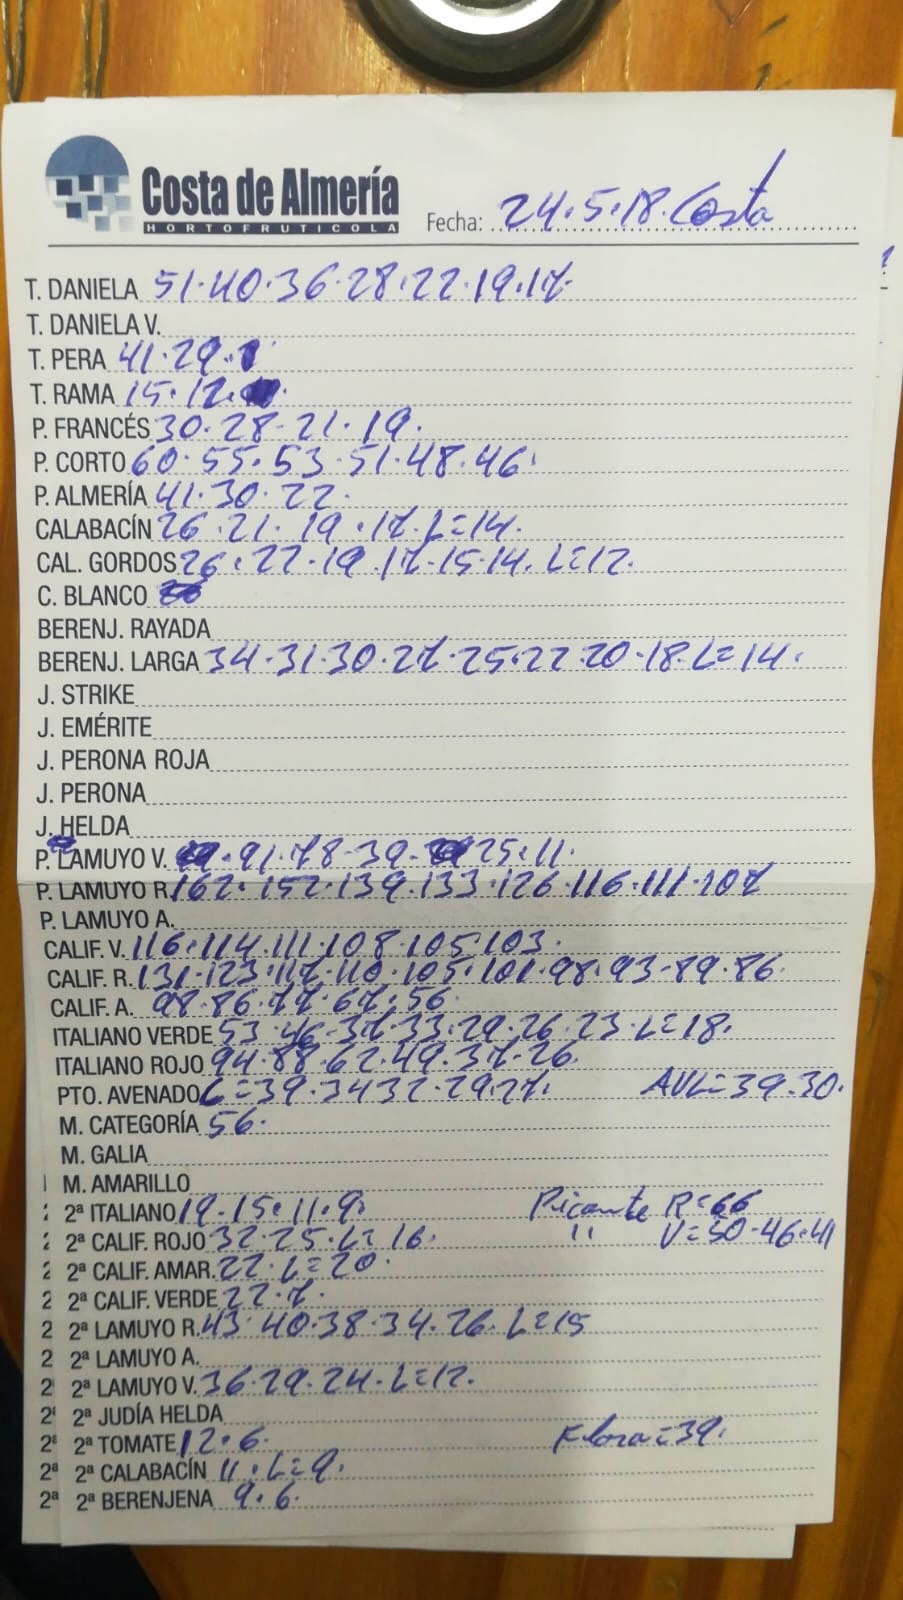 Costa de Almería
HORTOFRUTICOLA
Fecha: 24.5.18. Costa
T. DANIELA 51.40.36.28.22.19.17
T. DANIELA V.
T. PERA 41.29.
T. RAMA 15.12.
P. FRANCÉS 30.28.21.19.
P. CORTO 60.55.53.51.48.46.
P. ALMERÍA 41.30.22.
CALABACÍN 26.21.19.17.L=14.
CAL. GORDOS 26.22.19.17.15.14. L=12.
C. BLANCO
BERENJ. RAYADA
BERENJ. LARGA 34.31.30.27.25.22.20.18.L=14.
J. STRIKE
J. EMÉRITE
J. PERONA ROJA
J. PERONA
J. HELDA
P. LAMUYO V. .91.78.39.25.11.
P. LAMUYO R. 162.152.139.133.126.116.111.107
P. LAMUYO A.
CALIF. V. 116.114.111.108.105.103.
CALIF. R. 131.123.117.110.105.101.98.93.89.86.
CALIF. A. 98.86.77.67.56.
ITALIANO VERDE 53.46.37.33.29.26.23.L=18.
ITALIANO ROJO 94.88.62.49.37.26.
PTO. AVENADO L=39.34 32.29 27. AVL=39.30.
M. CATEGORÍA 56.
M. GALIA
M. AMARILLO
2ª ITALIANO 19.15.11.9. Picante R=66
2ª CALIF. ROJO 32.25.L=16. " V=50.46.41
2ª CALIF. AMAR. 22.L=20.
2ª CALIF. VERDE 22.7.
2ª LAMUYO R. 43.40.38.34.26.L=15
2ª LAMUYO A.
2ª LAMUYO V. 36.29.24.L=12.
2ª JUDÍA HELDA
2ª TOMATE 12.6. Flora=39.
2ª CALABACÍN 11.L=9.
2ª BERENJENA 9.6.